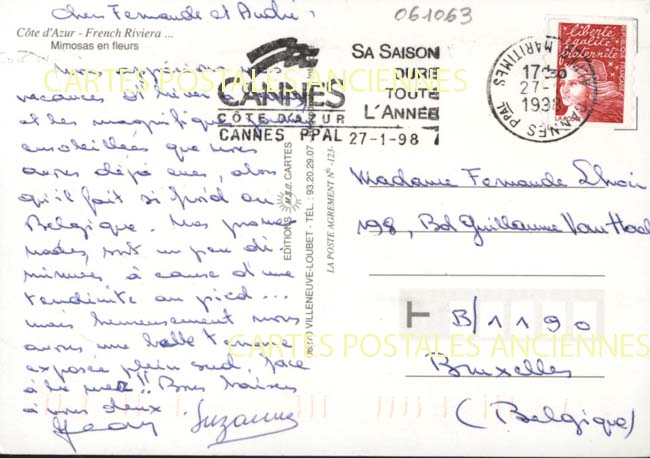 061063
Chers Fernande et André,
Côte d'Azur - French Riviera ...
Mimosas en fleurs
Nous apprécions nos
vacances d'hiver
et les magnifiques journées
ensoleillées que nous
avons déjà eues, alors
qu'il fait si froid en
Belgique. Nos prome-
nades sont un peu di-
minuées à cause d'une
tendinite au pied...
mais heureusement nous
avons une belle terrasse
exposée plein sud, face
à la mer!! Bons baisers
à vous deux
Jean Suzanne
CANNES
CÔTE D'AZUR
SA SAISON
DURE
TOUTE
L'ANNÉE
CANNES PPAL 27-1-98
MARITIMES
17
27-
1998
CANNES PPAL
liberté
égalité
fraternité
LA POSTE
EDITIONS M.S.G CARTES
VILLENEUVE-LOUBET - TÉL.: 93.20.29.07
LA POSTE AGREMENT N° -123-
Madame Fernande
198, Bd Guillaume Van Hae
B/1190
Bruxelles
(Belgique)
CARTES POSTALES ANCIENNES
CARTES POSTALES ANCIENNES